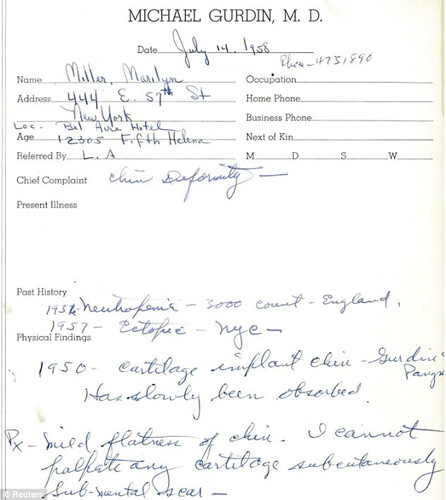 MICHAEL GURDIN, M. D.
Date July 14, 1958
Phone-4731890
Name Miller, Marilyn
Occupation
Address 444 E. 57th St
Home Phone
New York
Business Phone
Loc. Bel Aire Hotel
Age 12305 Fifth Helena
Next of Kin
Referred By L. A
M D S W
Chief Complaint chin deformity —
Present Illness
Past History
1956 Neutropenia - 3000 count - England,
1957 - Ectopic - NYC -
Physical Findings
1950 - cartilage implant chin - Gurdin
Has slowly been absorbed.
Px - mild flatness of chin. I cannot
palpate any cartilage subcutaneously
Sub-mental scar -
© Reuters